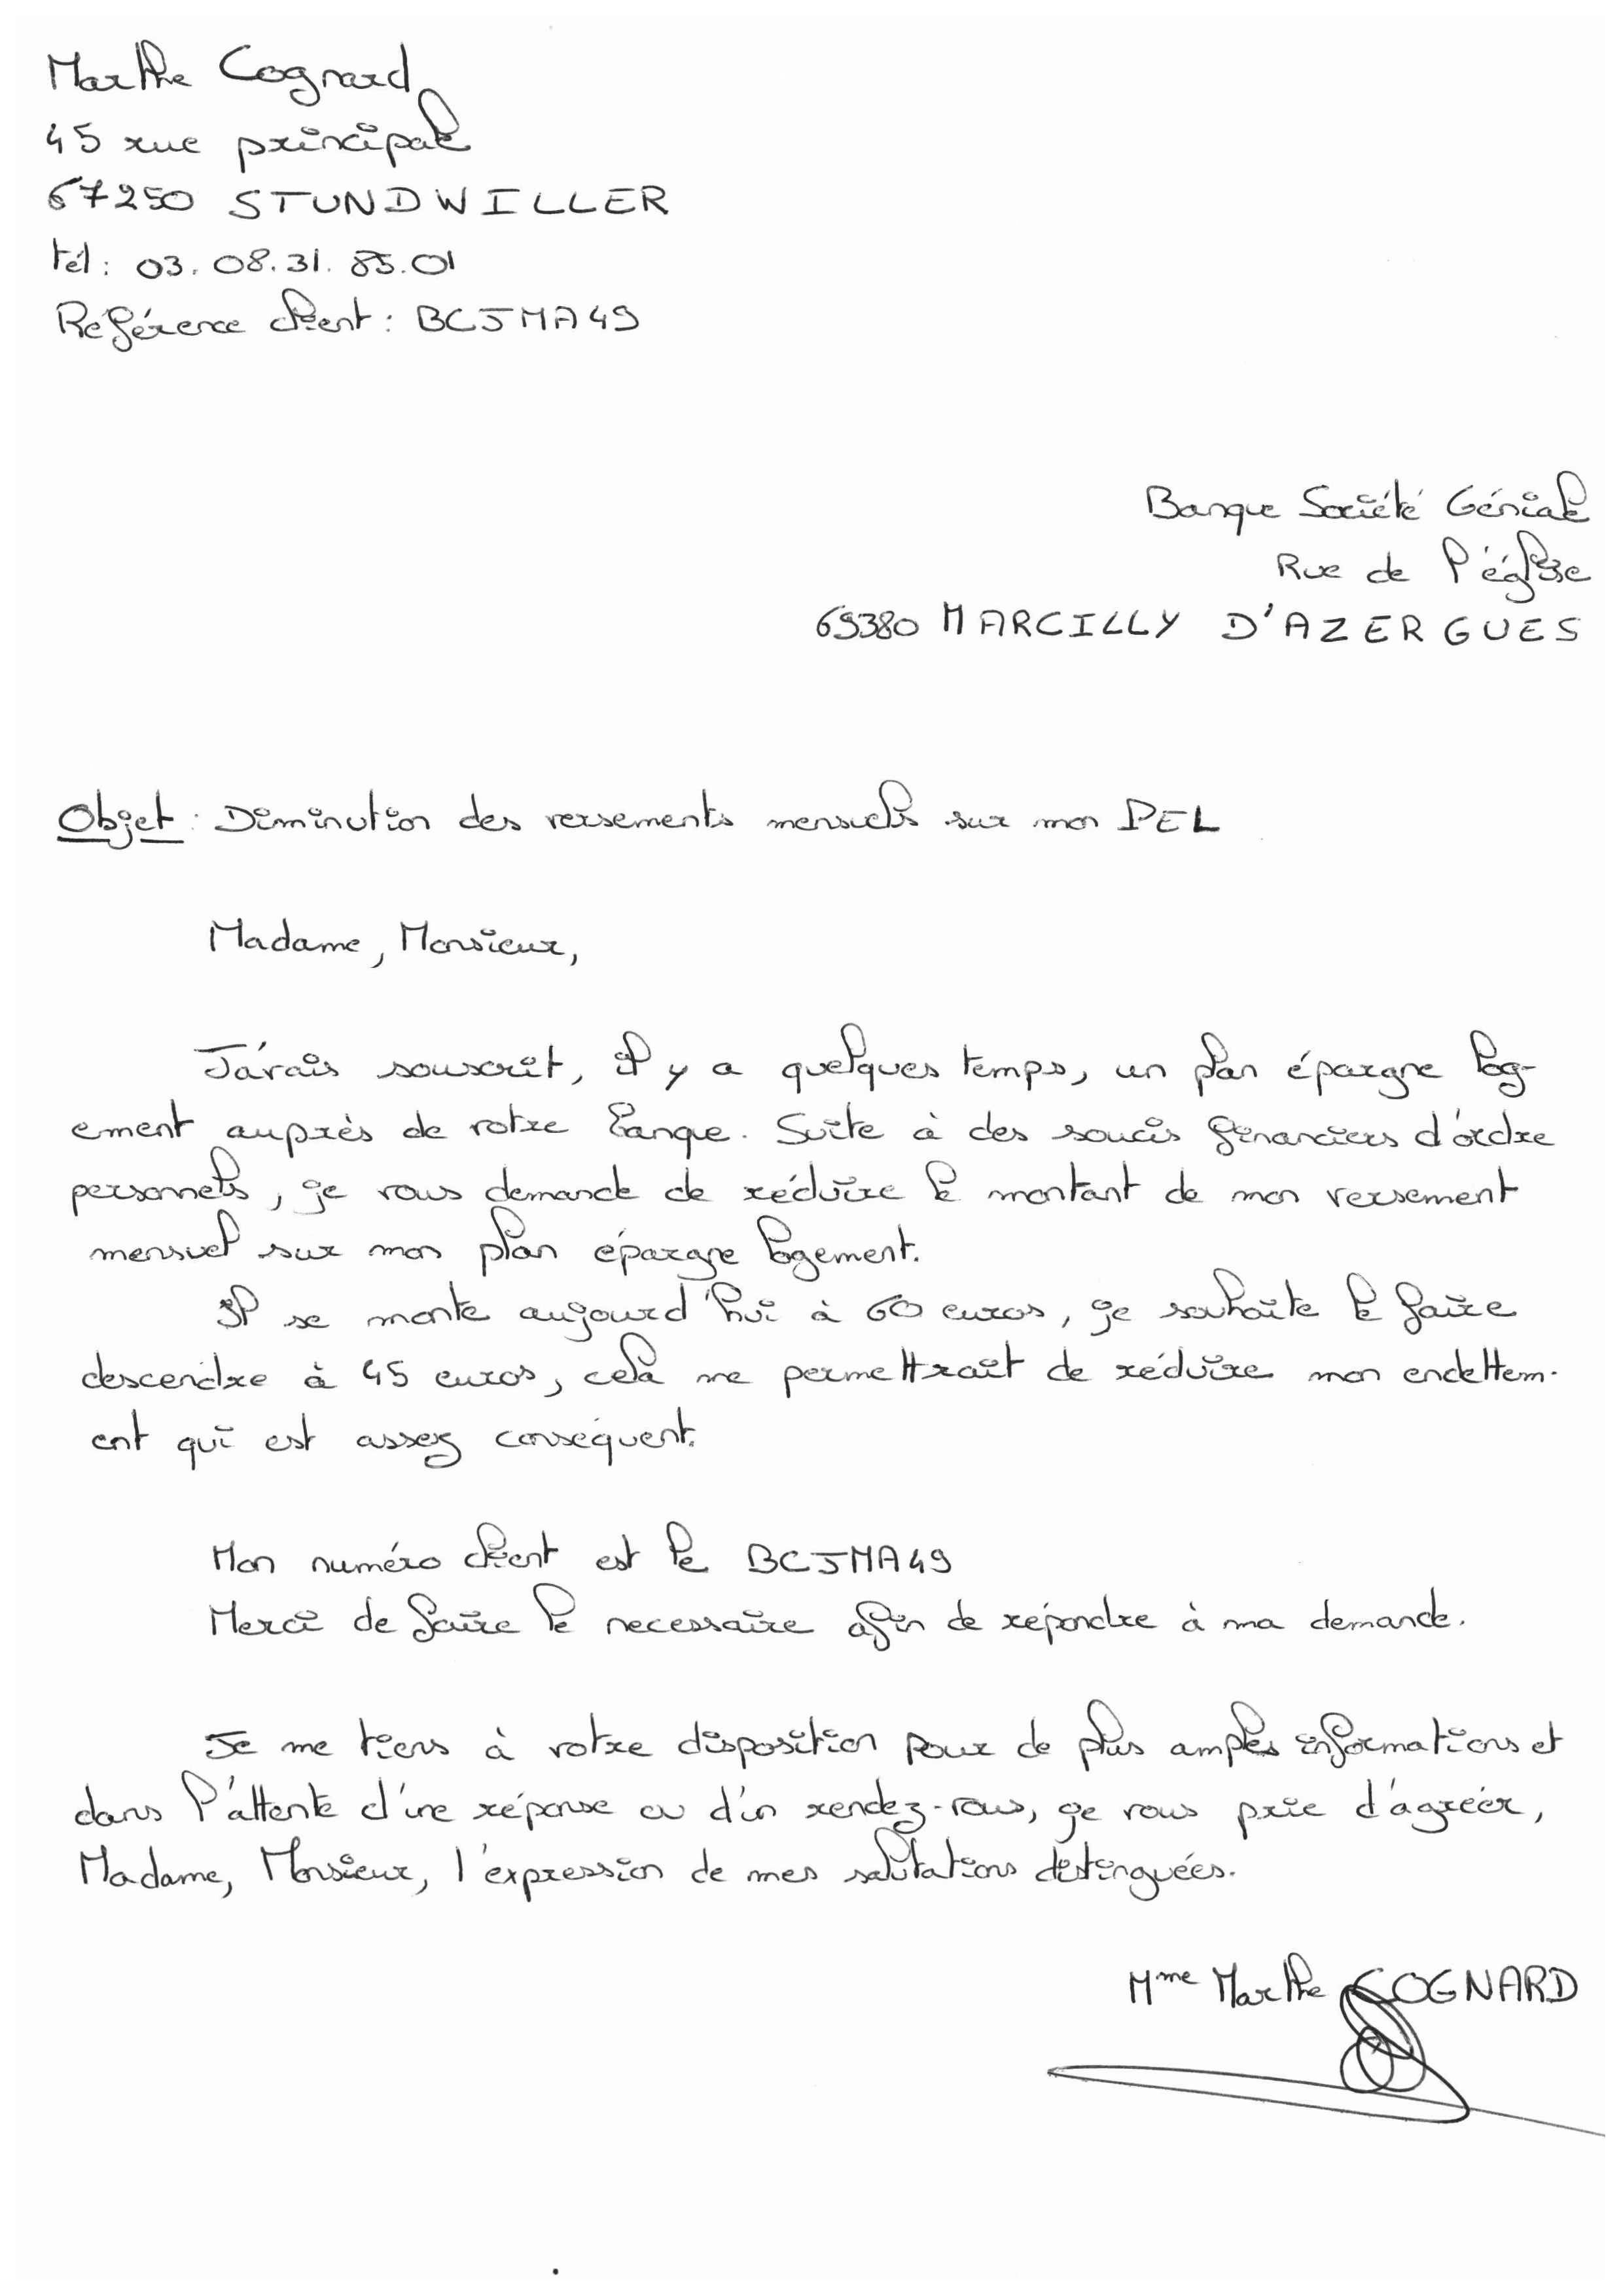 Marthe Cognard
45 rue principale
67250 STUNDWILLER
tél : 03.08.31.85.01
Référence client : BCJMA49
Banque Société Géniale
Rue de l'église
69380 MARCILLY D'AZERGUES
Objet : Diminution des versements mensuels sur mon PEL
Madame, Monsieur,
J'avais souscrit, il y a quelques temps, un plan épargne log-
ement auprès de votre banque. Suite à des soucis financiers d'ordre
personnels, je vous demande de réduire le montant de mon versement
mensuel sur mon plan épargne logement.
Il se monte aujourd'hui à 60 euros, je souhaite le faire
descendre à 45 euros, cela me permettrait de réduire mon endettem-
ent qui est assez conséquent.
Mon numéro client est le BCJMA49
Merci de faire le necessaire afin de répondre à ma demande.
Je me tiens à votre disposition pour de plus amples informations et
dans l'attente d'une réponse ou d'un rendez-vous, je vous prie d'agréer,
Madame, Monsieur, l'expression de mes salutations distinguées.
Mme Marthe COGNARD